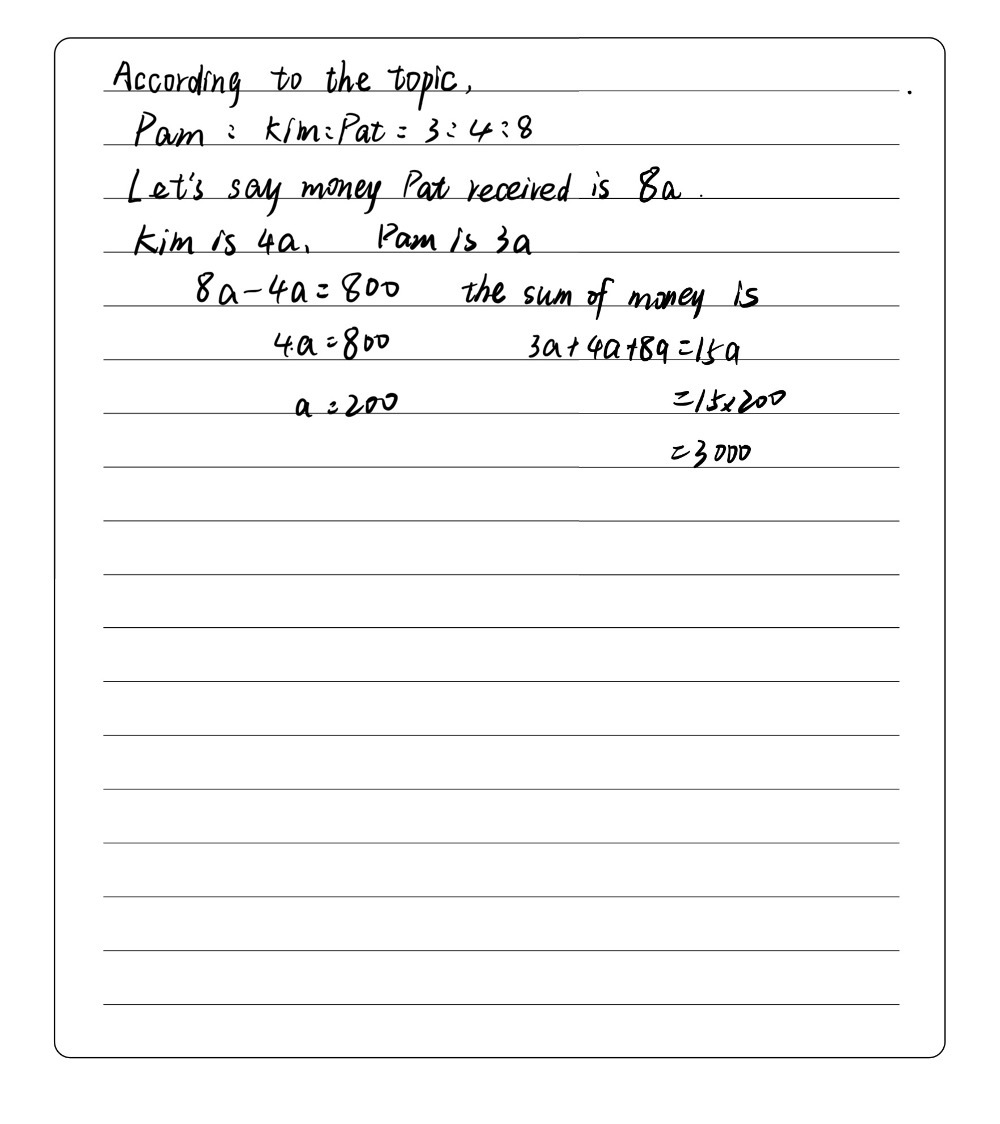 According to the topic,
Pam : Kim : Pat = 3 : 4 : 8
Let's say money Pat received is 8a.
Kim is 4a, Pam is 3a
8a - 4a = 800 the sum of money is
4a = 800 3a + 4a + 8a = 15a
a = 200 = 15 x 200
= 3000